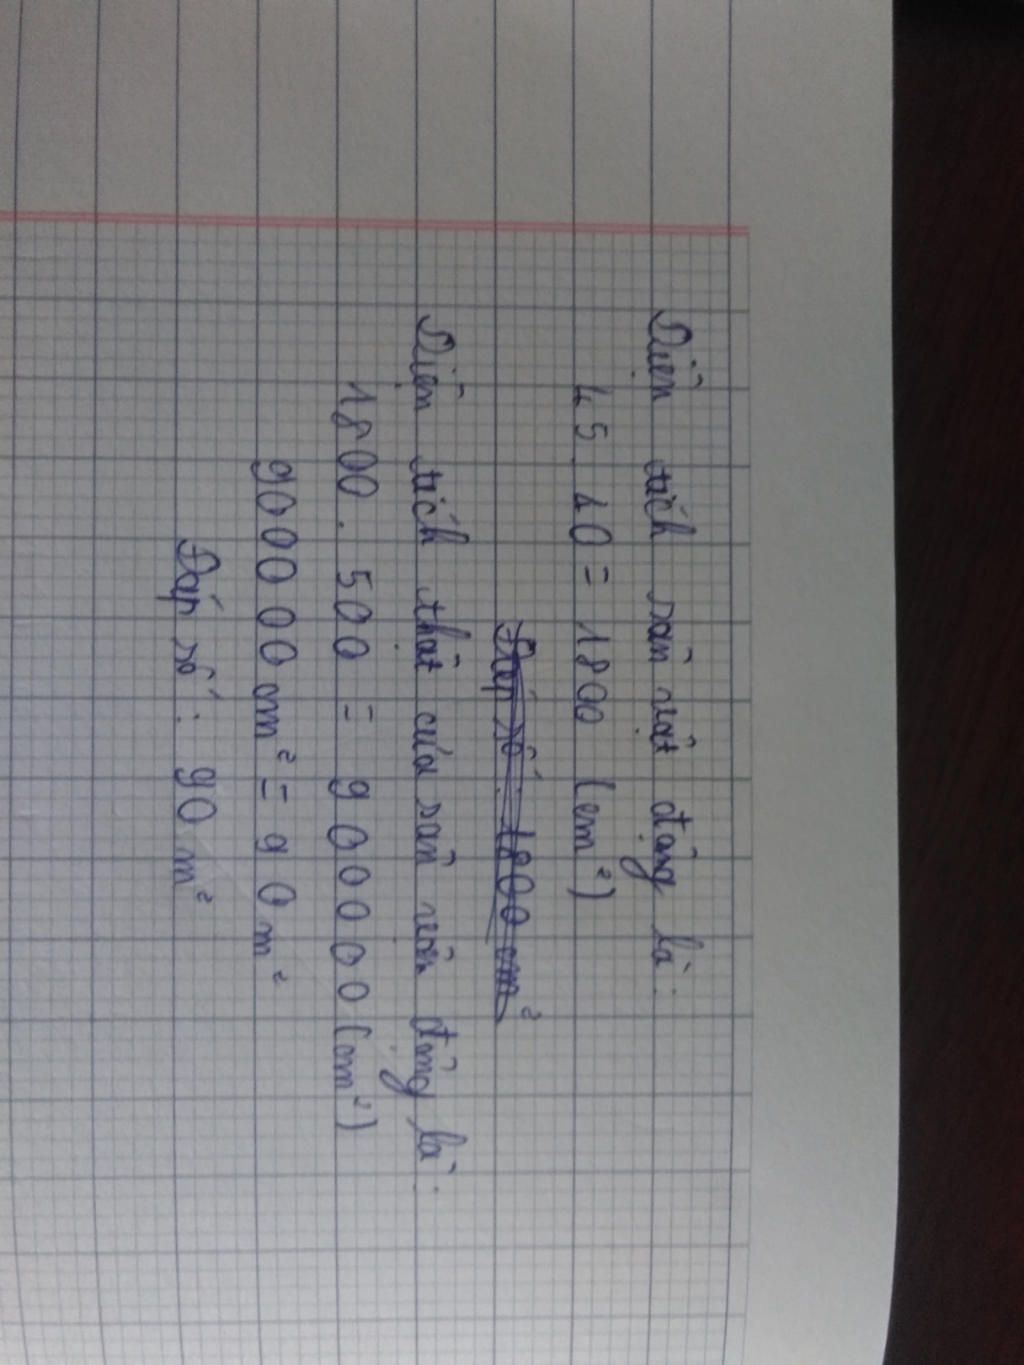 Diện tích sân vật động là:
45 . 40 = 1800 (cm²)
Đáp số : 1800 cm²
Diện tích thật của sân vân động là:
1800 . 500 = 900000 (cm²)
900000 cm² = 90 m²
Đáp số : 90 m²